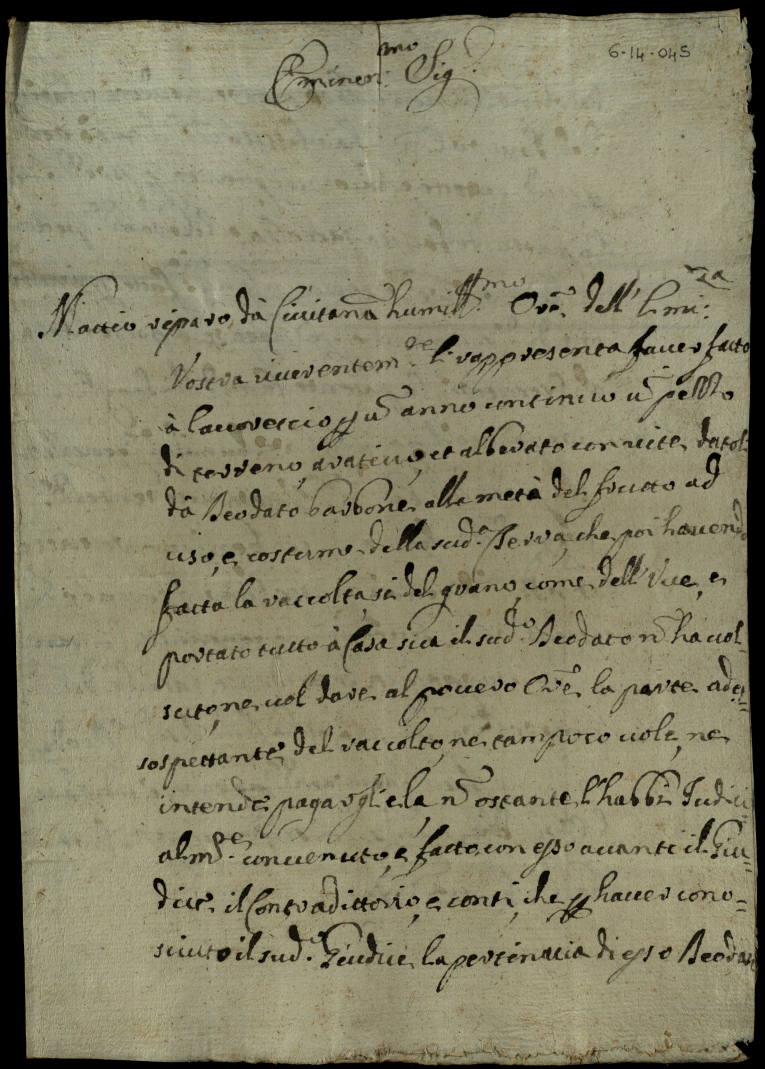 6-14-045
Eminen:mo Sig:r
Mattio riparo da Ciuitanā humill:mo Orē. dell' Emi:za
Vostra riuerentem:te li rappresenta hauer fatto
à lauorescio p ū anno continuo ū pezzo
di terreno, aratiuo, et alberato con uite datoli
dà Deodato barbone, alla metà del frutto ad
uso, e costume della sud:a Terra, che poi hauendo
fatta la raccolta, si del grano, come dell'Vue, e
portato tutto à Casa sua il sud:o Deodato nō ha uol-
suto, ne uol dare al pouero Orē la parte ad es-
so spettante del raccolto, ne tampoco uole, ne
intende pagargliela nō ostante l'habbi Iudici
alm:te conuenuto, e fatto con esso auanti il Giu-
dice il Contradittorio, e conti, che p hauer cono-
sciuto il sud:o Giudice la pertinacia di esso Deodato